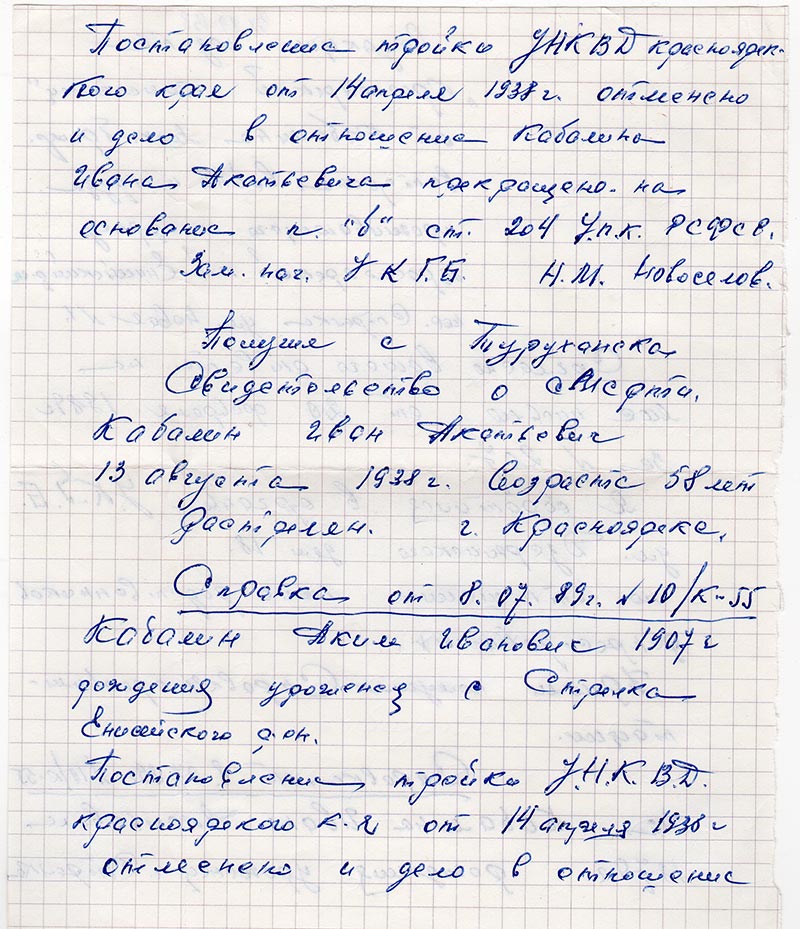 Постановление тройки УНКВД красноярск-
кого края от 14 апреля 1938 г. отменено
и дело в отношение Кабалина
Ивана Акатьевича прекращено на
основание п. "б" ст. 204 У.П.К. РСФСР.
Зам. нач. УКГБ Н.М. Новоселов.
Получил с Туруханска
Свидетельство о смерти.
Кабалин Иван Акатьевич
13 августа 1938 г. Возрасте 58 лет
расстрелян. г. Красноярске.
Справка от 8.07.89г. № 10/К-55
Кабалин Аким Иванович 1907 г
рождения уроженец с Стрелка
Енисейского р-он.
Постановление тройки У.Н.К.В.Д.
красноярского к.я от 14 апреля 1938 г
отменено и дело в отношение